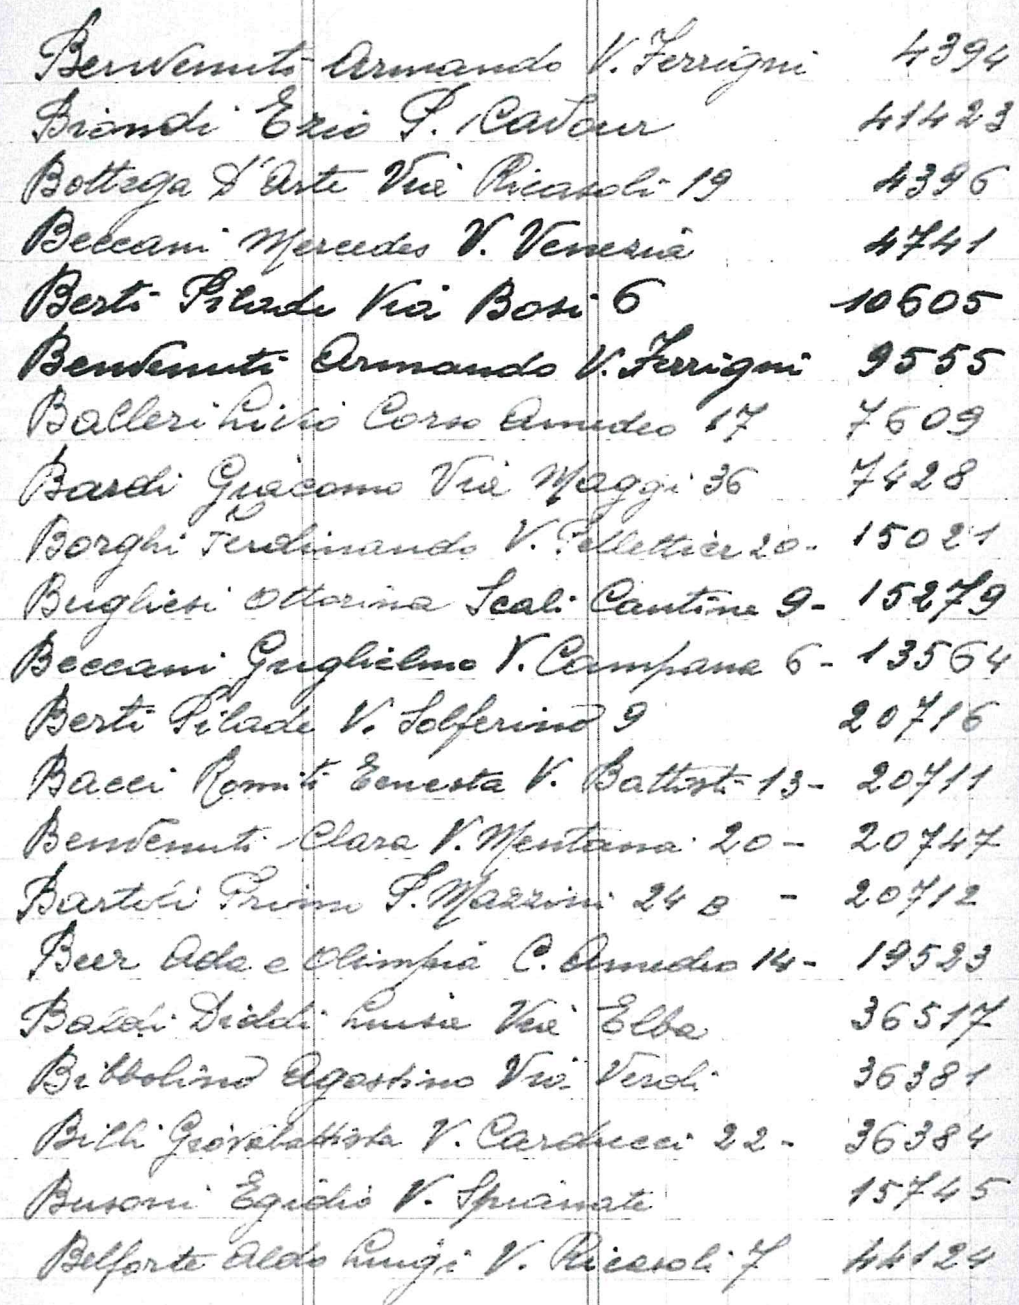 Benvenuti Armando V. Ferrigni 4394
Biondi Ezio P. Cavour 41423
Bottega D'Arte Via Ricasoli 19 4396
Beccani Mercedes V. Venezia 4741
Berti Pilade Via Bosi 6 10605
Benvenuti Armando V. Ferrigni 9555
Balleri Livio Corso Amedeo 17 7609
Bardi Giacomo Via Maggi 36 7428
Borghi Ferdinando V. Pellettier 20- 15021
Bugliesi Ottorina Scali Cantine 9- 15279
Beccani Guglielmo V. Campana 6- 13564
Berti Pilade V. Solferino 9 20716
Bacci Romiti Ernesta V. Battisti 13- 20711
Benvenuti Clara V. Mentana 20- 20747
Bartoli Primo P. Mazzini 24 B - 20712
Beer Ada e Olimpia C. Amedeo 14- 19523
Baldi Diddi Luisa Via Elba 36517
Bibbolino Agostino Via Verdi 36381
Billi Giovabattista V. Carducci 22- 36384
Busoni Egidio V. Spianate 15745
Belforte Aldo Luigi V. Ricasoli 7 44124